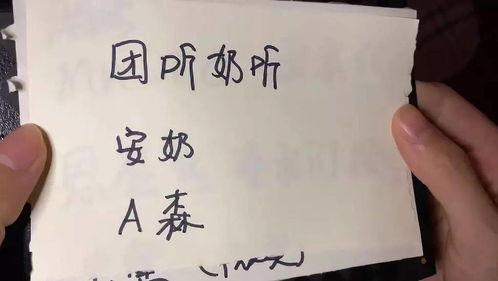 团听奶听
安奶
A森